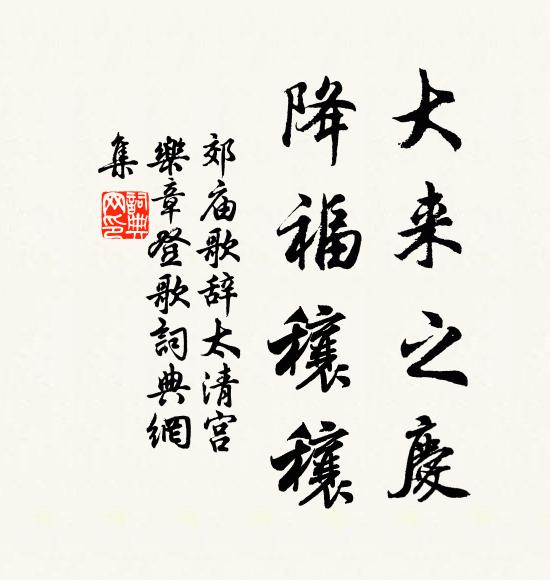 大来之慶
降福穰穰
郊庙歌辞太清宫
樂章登歌詞典網
集
詞典
网印